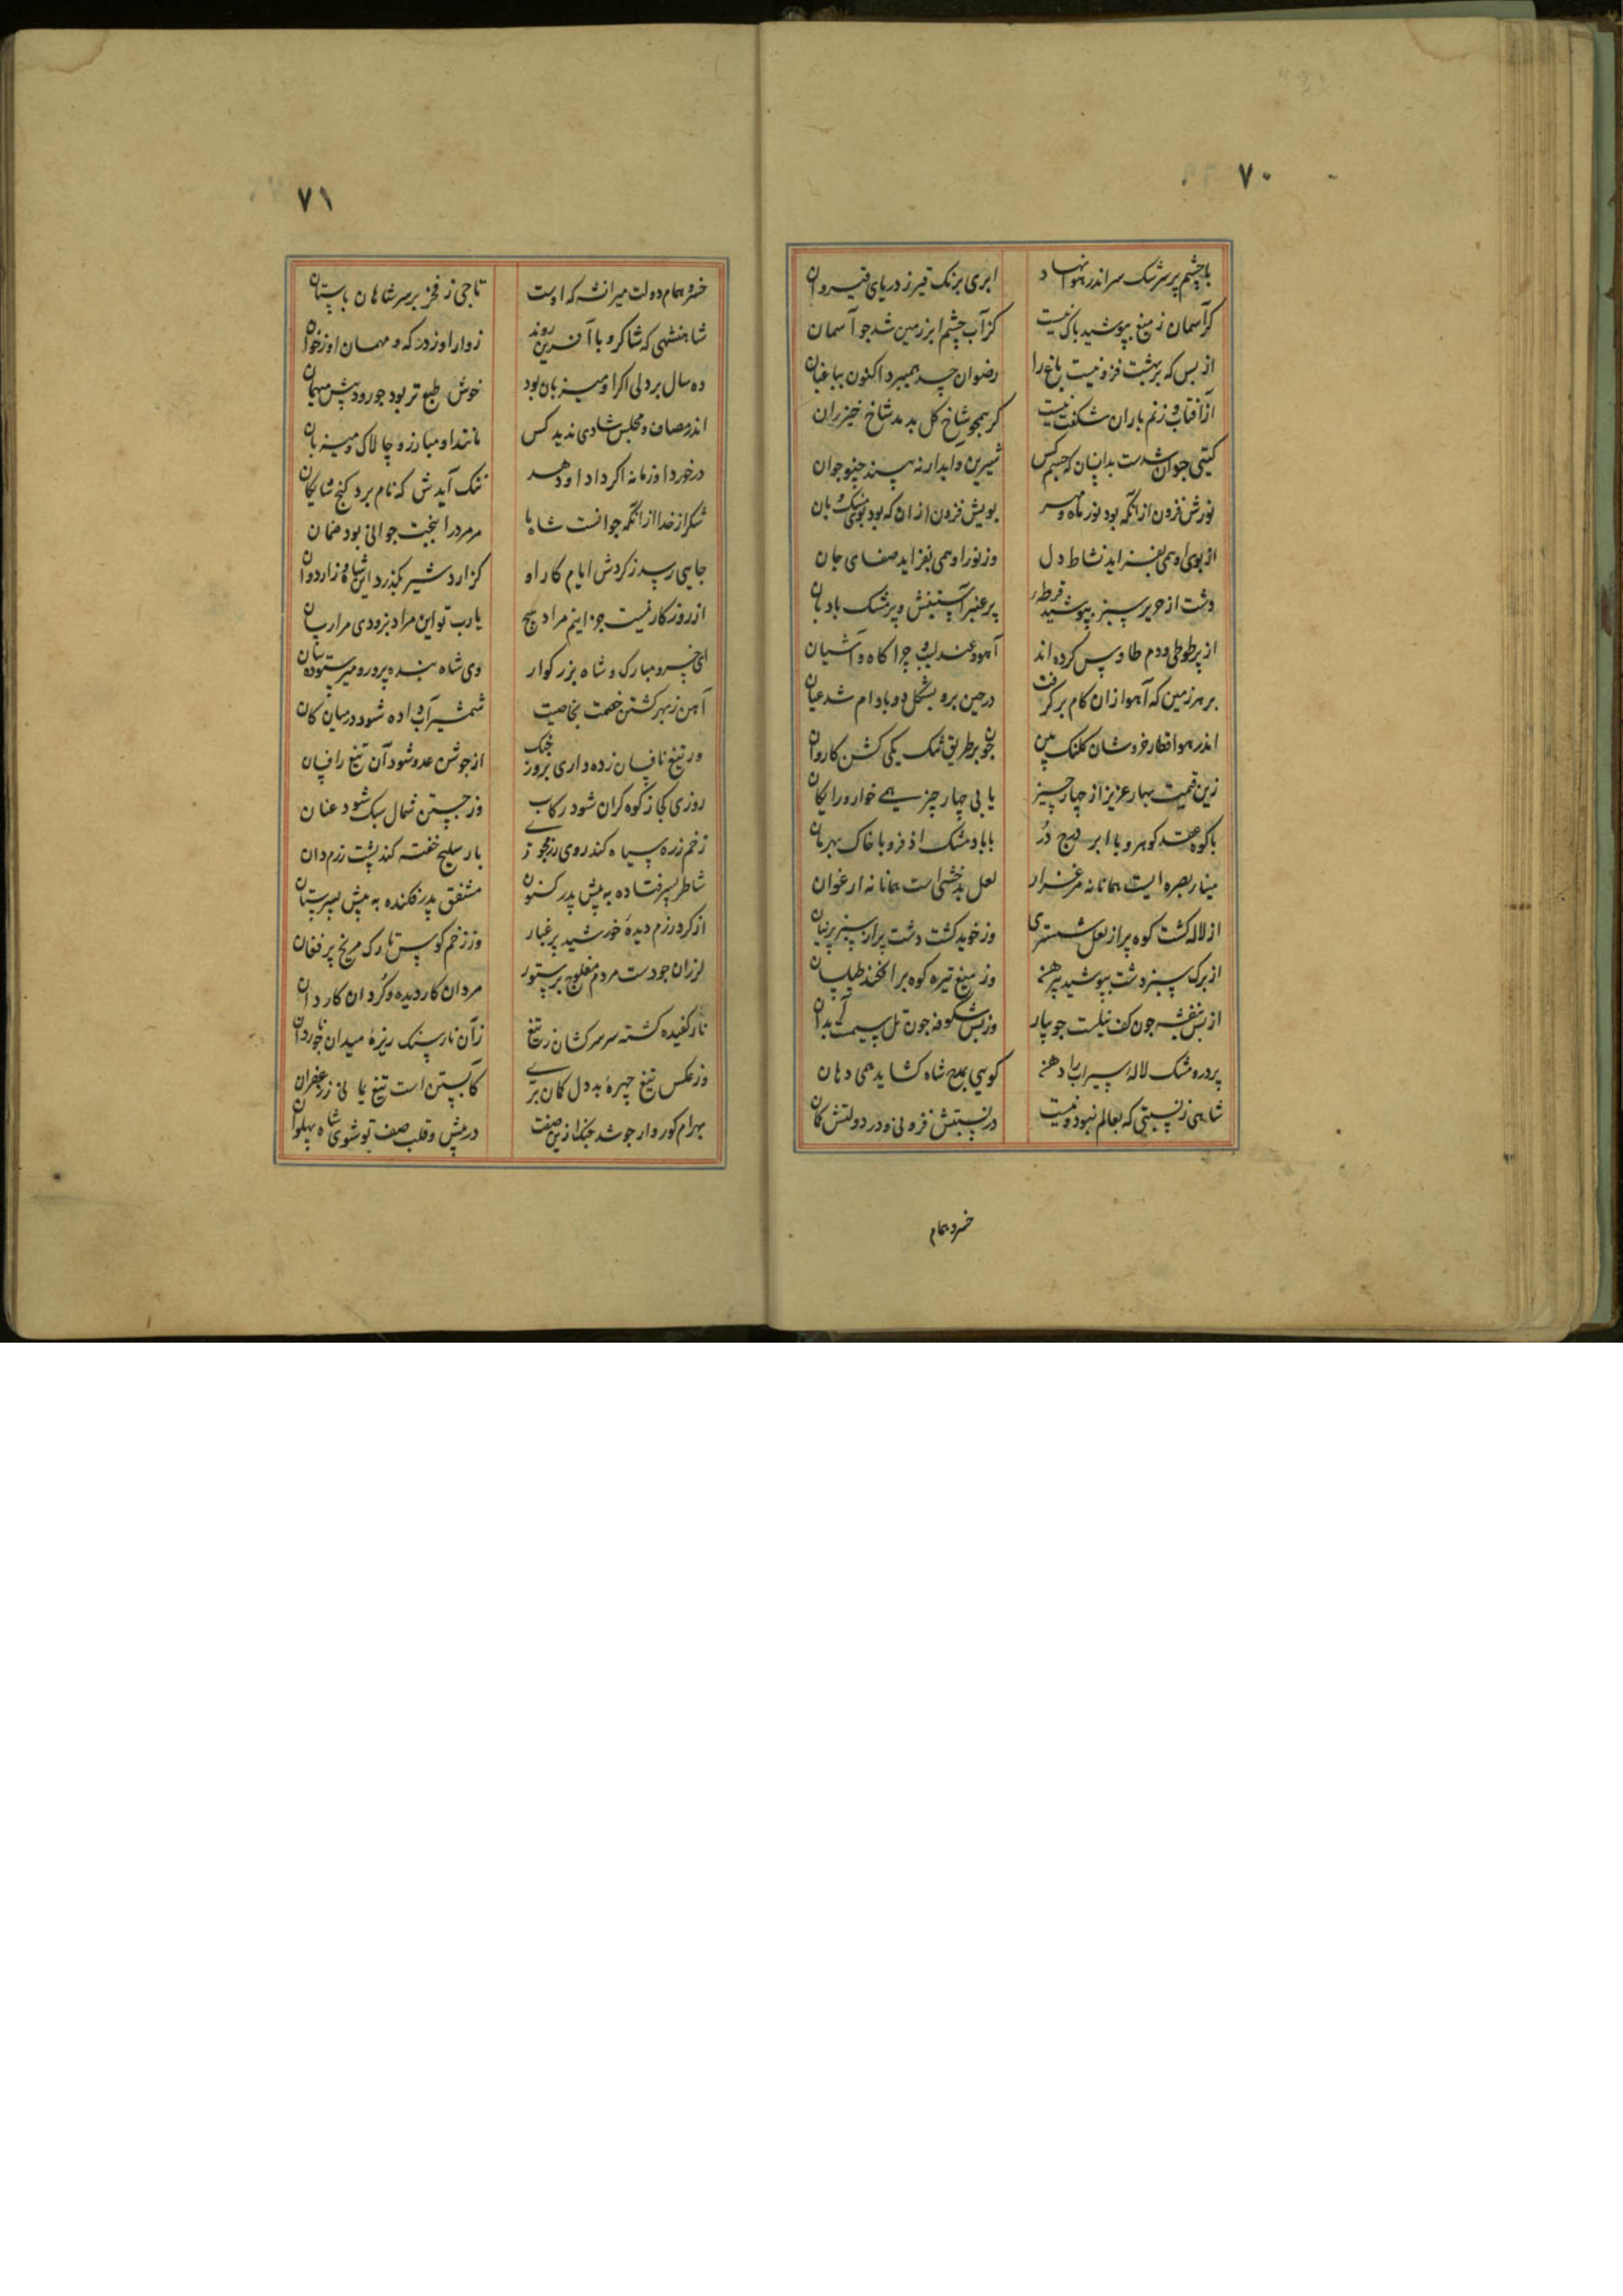 ۷۰
با چشم پر سرشک سر اندر هوا نهاد ابری برنک قیر ز دریای قیروان
کر آسمان ز میغ بپوشید باک نیست کز آب چشم ابر زمین شد جو آسمان
از بس که بر بهشت فزونیست باغ را رضوان حسد همیبرد اکنون بباغبان
از آفتاب و زنم باران شکفت نیست کر همجو شاخ کل بدمد شاخ خیزران
کیتی جوان شدست بدانسان که جسم کس شیرین و آبدار نه بیند جنو جوان
نورش فزون از آنکه بود نور ماه و مهر بویش فزون از ان که بود بوی مشک و بان
از بوی او همی بفزاید نشاط دل وز نور او همی بفزاید صفای جان
دشت از حریر سبز بپوشید قرطه پر عنبر آستینش و پر مشک بادبان
از پر طوطی و دم طاوس کرده اند آهو و عندلیب چراکاه و آشیان
بر هر زمین که آهو ازان کام بر کرفت در حین برو بشکل دو بادام شد عیان
اندر هوا قطار خروشان کلنک بین جون بر طریق تنک یکی کشن کاروان
زین قیمت بهار عزیز از چهار چیز یابی چهار چیز همی خوار و رایکان
با کوه عقد کوهر و با ابر درج در با باد مشک اذفر و با خاک بهرمان
مینا ببصره ایست همانا نه مرغزار لعل بدخشی است همانا نه ارغوان
از لاله کشت کوه پر از لعل ششتری وز خوید کشت دشت پر از سبز پرنیان
از برک سبز دشت بپوشید پیرهن وز میغ تیره کوه بر افکند طیلسان
از بس بنفشه جون کف نیلست جویبار وز بس شکوفه جون تل سیمست آبدان
پر دره مشک لالهٔ سیراب را دهن کویی بمدح شاه کشاید همی دهان
شاهی ز نسبتی که بعالم نبود و نیست در نسبتش فزونی و در دولتش کمان
خسرو همام
۷۱
خسرو همام دولت میرانشه که اوست تاجی ز فخر بر سر شاهان باستان
شاهنشهی که شاکر و با آفرین روند زوار او ز درکه و مهمان او ز خوان
ده سال بر دلی اکر او میزبان بود خوش طبع تر بود جو رود پیش میهمان
اندر مصاف و مجلس شادی ندید کس مانند او مبارز و چالاک و میزبان
در خورد او زمانه اکر داد او دهد ننک آیدش که نام برد کنج شایکان
شکر از خدا از آنکه جوانست شاه ما مر مرد را ببخت جوانی بود ضمان
جایی رسد ز کردش ایام کار او
از روزکار نیست جز اینم مراد هیچ یارب تو این مراد بزودی مرا رسان
ای خسرو مبارک و شاه بزرکوار وی شاه بنده پرور و میر ستوده سان
آهن ز بهر کشتن خصمت بخاصیت شمشیر آب داده شود در میان کان
ور تیغ نافسان زده داری بروز جنک از جوشن عدو شود آن تیغ را فسان
روزی کجا ز کوه کران شود رکاب وز جستن شمال سبک شود عنان
زخم زره سیاه کند روی رزمجوی بار سلیح خفته کند پشت رزم دان
شاطر پسر فتاده به پیش پدر نکون مشفق پدر فکنده به پیش پسر ستان
از کرد رزم دیدهٔ خورشید پر غبار وز زخم کوس تارک مریخ پر فغان
لرزان جو دست مردم مفلوج بر ستور مردان کار دیده و کردان کاردان
نار کفیده کشته سر سرکشان ز تیغ زآن نار سنک ریزهٔ میدان جو ناردان
وز عکس تیغ چهرهٔ بددل کمان بری کابستن است تیغ یمانی ز زعفران
بهرام کوروار جو شد جنک ازین صفت در پیش و قلب صف تو شوی شاه پهلوان